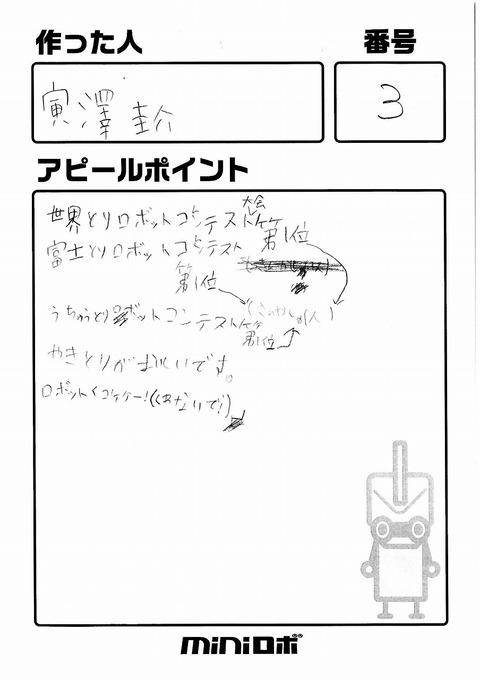 作った人
番号
寅澤 圭介
3
アピールポイント
世界とりロボットコンテスト大会 第1位
富士とりロボットコンテスト
第1位
うちゅうとりロボットコンテスト
第1位
やきとりがおいしいです。
ロボット<コケケー!
miniロボ